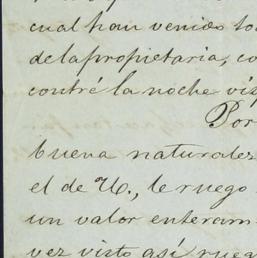 cual han venido to
de la propietaria, co
contré la noche vís
Por
buena naturalez
el de V., le ruego
un valor enteram
vez visto así, rueg